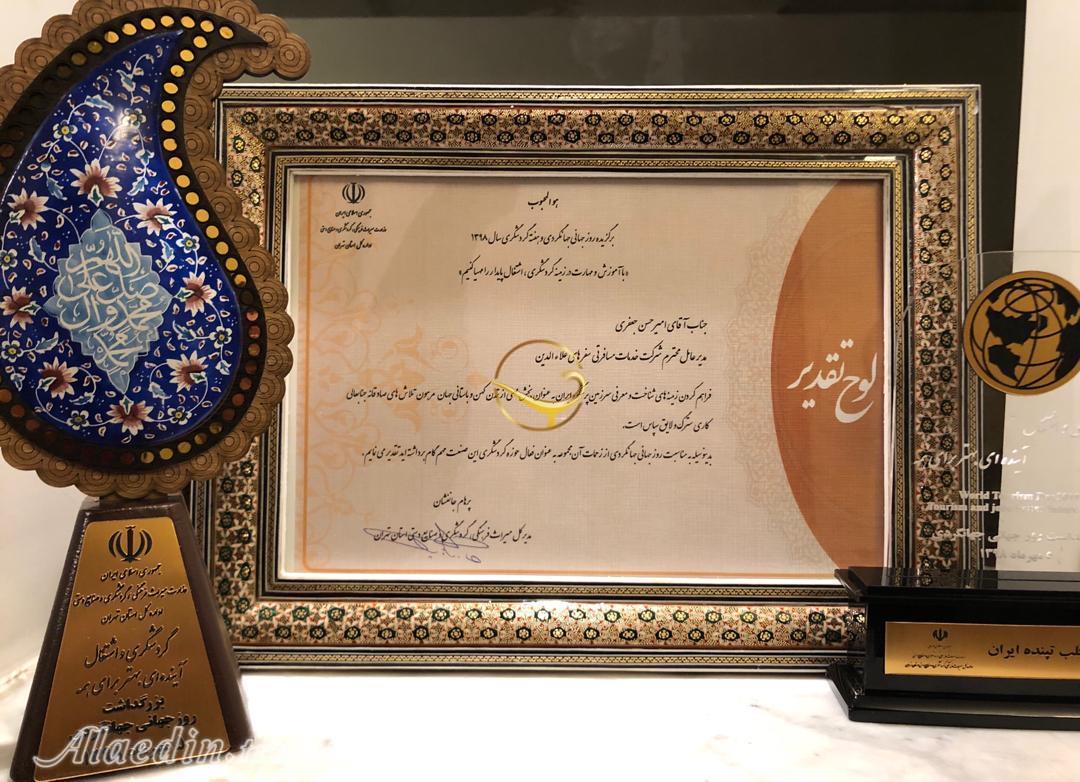 هو المحبوب
جمهوری اسلامی ایران
وزارت میراث فرهنگی، گردشگری و صنایع دستی
اداره کل استان تهران
برگزیده روز جهانی جهانگردی و هفته گردشگری سال ۱۳۹۸
«با آموزش و مهارت در زمینه گردشگری، اشتغال پایدار را مهیا کنیم»
جناب آقای امیرحسن جعفری
مدیرعامل محترم شرکت خدمات مسافرتی سفرهای علاءالدین
فراهم کردن زمینه‌های شناخت و معرفی سرزمین ایران به عنوان از تمدن کهن و باستانی جهان مرهون تلاش های صادقانه جنابعالی
کاری سترگ و لایق سپاس است.
بدینوسیله به مناسبت روز جهانی جهانگردی از زحمات آن مجموعه به عنوان فعال حوزه گردشگری این صنعت مهم گام برداشته اید تقدیر می نمایم.
پرهام جانفشان
مدیرکل میراث فرهنگی، گردشگری و صنایع دستی استان تهران
لوح تقدیر
اللهم
صل علی
محمد و آل
محمد
جمهوری اسلامی ایران
وزارت میراث فرهنگی، گردشگری و صنایع دستی
اداره کل استان تهران
گردشگری و اشتغال
آینده‌ای بهتر برای همه
بزرگداشت
روز جهانی
Alaedin
آینده‌ای بهتر برای همه
World Tourism
Tourism and
روز جهانی جهانگردی
۵ مهرماه ۱۳۹۸
تپنده ایران